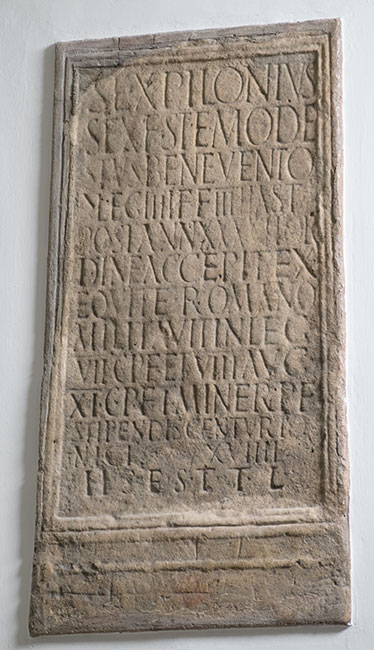 SEX PILONIVS
SEX F STE MODE
STVS BENEVENTO
LEG IIII F F IIII HAST
POST ANN XXXVII OR
DINE ACCEPIT EX
EQVITE ROMANO
MILITAVIT IN LEG
VII C P F ET VIII AVG
XI C P F ET I MINER P F
STIPENDIS CENTVRIO
NICI XVIIII
H S EST T L